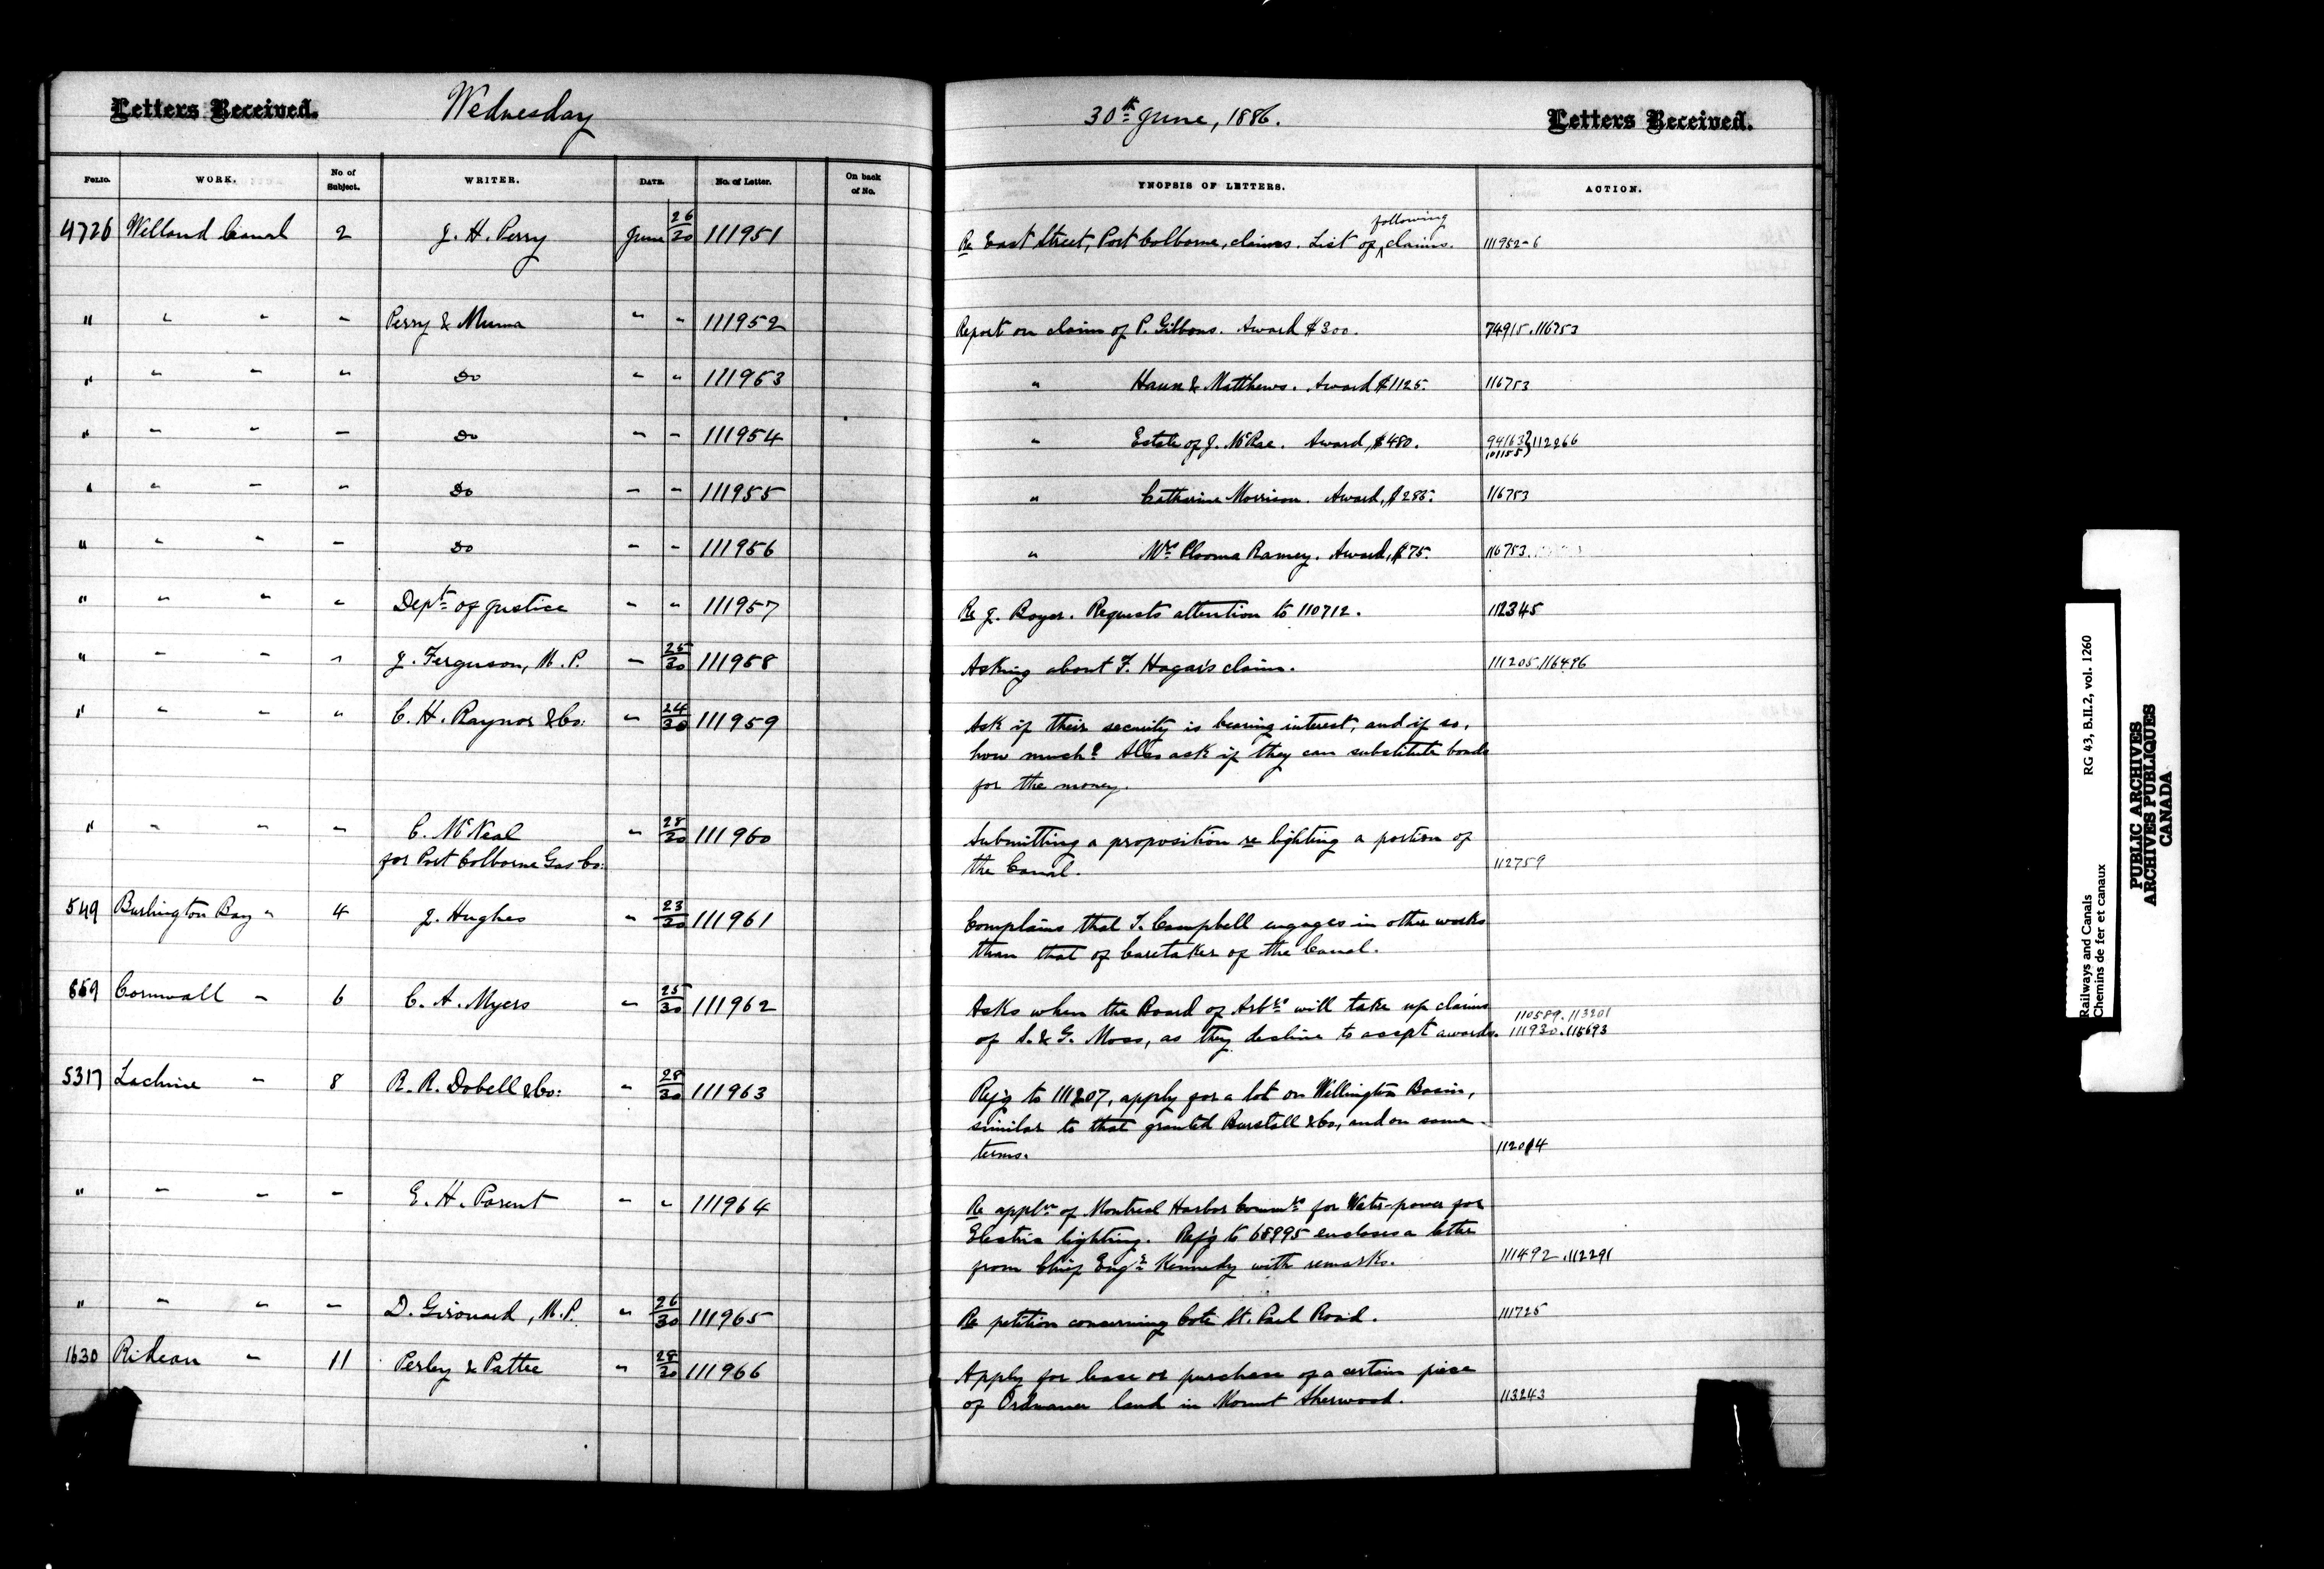 Letters Received. Wednesday 30th June, 1886. Letters Received.
FOLIO. WORK. No of Subject. WRITER. DATE. No. of Letter. On back of No. YNOPSIS OF LETTERS. ACTION.
following
4726 Welland Canal 2 J. H. Perry June 26/30 111951 Re East Street, Port Colborne, claims. List of ^ claims. 111952-6
" " " " Perry & Muma " " 111952 Report on claim of P. Gibbons. Award $300. 74915.116753
" " " " Do " " 111953 " Haun & Matthews. Award $1125. 116753
" " " " Do " " 111954 " Estate of J. McRae. Award, $480. 94163 } 112266
101155 }
" " " " Do " " 111955 " Catharine Morrison. Award, $286. 116753
" " " " Do " " 111956 " Mrs Clooma Ramey. Award, $75. 116753.
" " " " Dept of Justice " " 111957 Re J. Boyer. Requests attention to 110712. 112345
" " " " J. Ferguson, M.P. " 25/30 111958 Asking about F. Hagar's claim. 111205.116496
" " " " C. H. Raynor & Co: " 24/30 111959 Ask if their security is bearing interest, and if so,
how much? Also ask if they can substitute bonds
for the money.
" " " " C. McNeal " 28/30 111960 Submitting a proposition re lighting a portion of
for Port Colborne Gas Co: the Canal. 112759
549 Burlington Bay " 4 J. Hughes " 23/30 111961 Complains that T. Campbell engages in other works
than that of Caretaker of the Canal.
669 Cornwall " 6 C. A. Myers " 25/30 111962 Asks when the Board of Arbrs will take up claims 110589.113201
of S. & G. Moss, as they decline to accept awards. 111930.115693
5317 Lachine " 8 R. R. Dobell & Co: " 28/30 111963 Ref'g to 111207, apply for a lot on Wellington Basin,
similar to that granted Burstall & Co, and on same
terms. 112014
" " " " E. H. Parent " " 111964 Re appln of Montreal Harbor Commrs for Water-power for
Electric lighting. Ref'g to 68995 encloses a letter
from Chief Engr Kennedy with remarks. 111492.112291
" " " " D. Girouard, M.P. " 26/30 111965 Re petition concerning Cote St. Paul Road. 111725
1630 Rideau " 11 Perley & Pattee " 28/30 111966 Apply for lease or purchase of a certain piece
of Ordnance land in Mount Sherwood. 113243
Railways and Canals RG 43, B.II.2, vol. 1260
Chemins de fer et canaux
PUBLIC ARCHIVES
ARCHIVES PUBLIQUES
CANADA